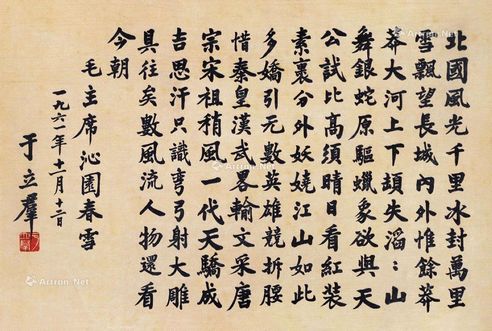 北國風光千里冰封萬里
雪飄望長城內外惟餘莽
莽大河上下頓失滔〻山
舞銀蛇原驅蠟象欲與天
公試比高須晴日看紅裝
素裹分外妖嬈江山如此
多嬌引无數英雄競折腰
惜秦皇漢武畧輸文采唐
宗宋祖稍風一代天驕成
吉思汗只識彎弓射大雕
具往矣數風流人物還看
今朝
毛主席沁園春雪
一九六一年
于立羣
Artron.Net
Artron.Net